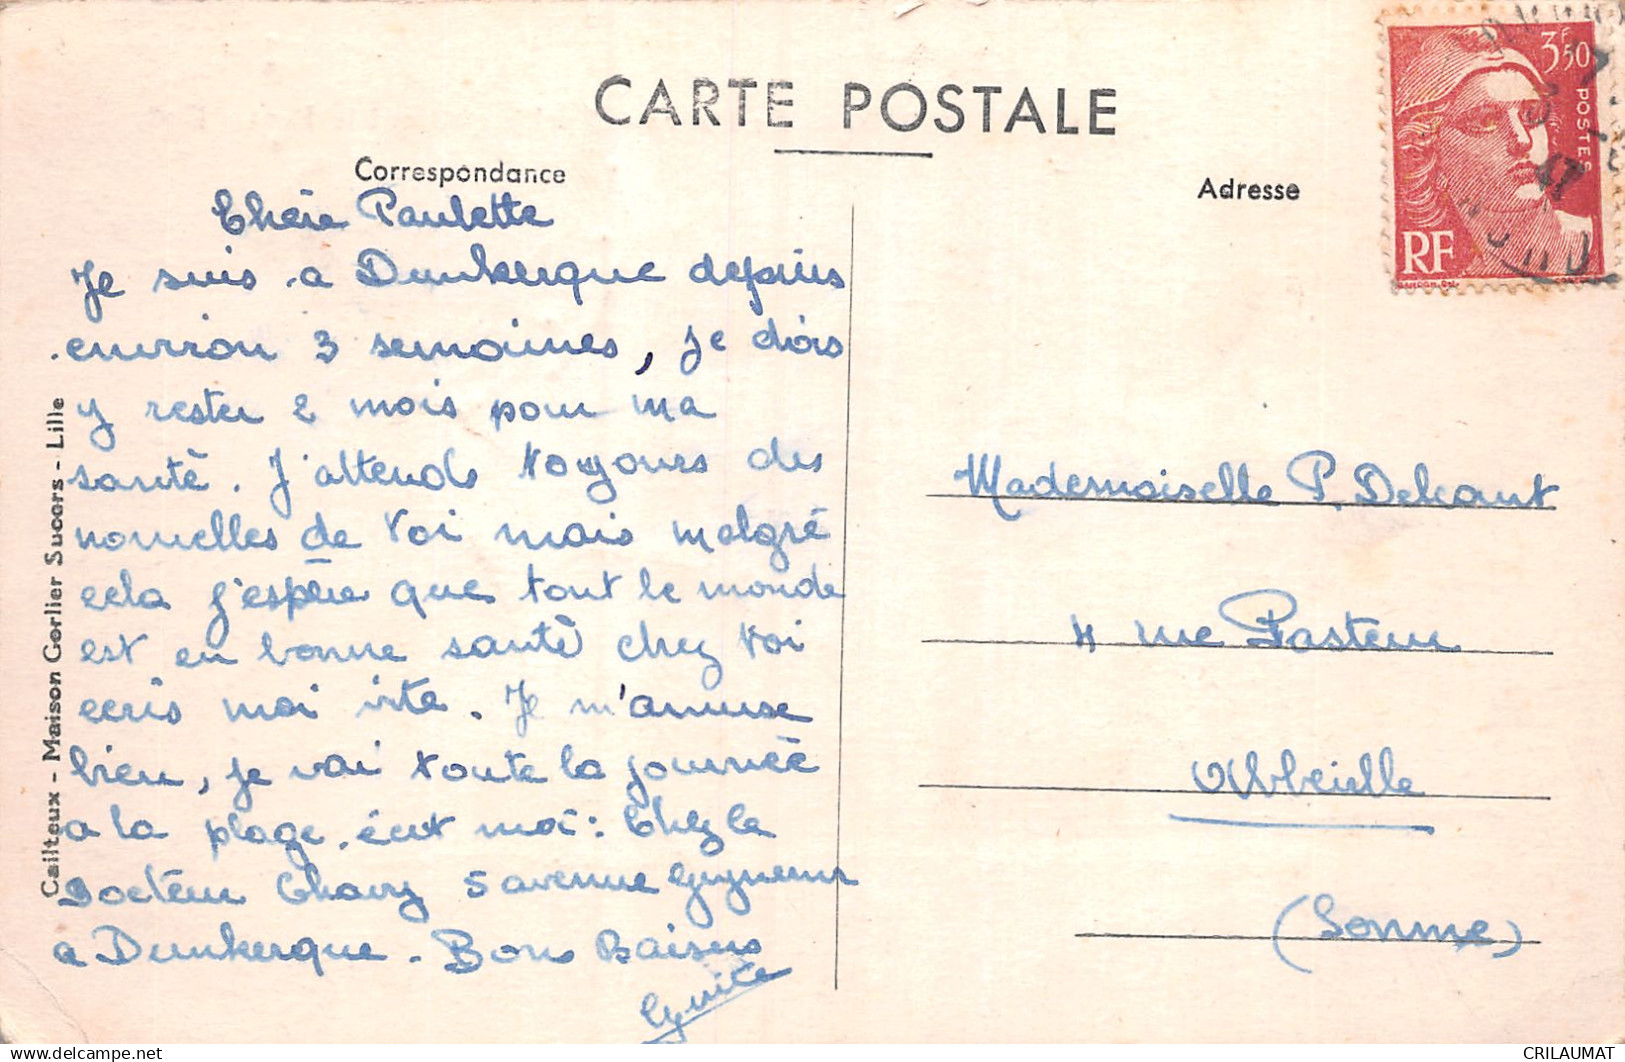 CARTE POSTALE
Correspondance
Adresse
3F50
POSTES
RF
47
Chère Paulette
Je suis a Dunkerque depuis
environ 3 semaines, je dois
y rester 2 mois pour ma
santè. J'attends toujours des
nouvelles de toi mais malgré
cela j'espère que tout le monde
est en bonne santè chez toi
ecris moi vite. Je m'amuse
bien, je vai toute la journèè
a la plage. écrt moi: Chez le
Docteur 5 avenue
a Dunkerque. Bons Baisers
Mademoiselle P. Delcourt
4 rue Pasteur
Abbeville
(Somme)
Cailteux - Maison Corlier Succrs - Lille
delcampe.net
CRILAUMAT